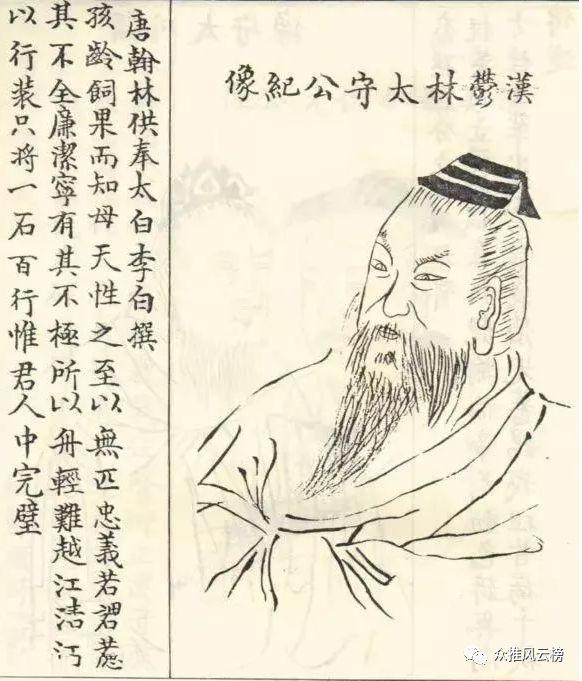 漢鬱林太守公紀像
唐翰林供奉太白李白撰
孩齡飼果而知母天性之至以無匹忠義若
其不全廉潔寧有其不極所以舟輕難越江清
以行装只将一石百行惟君人中完璧
众推风云榜